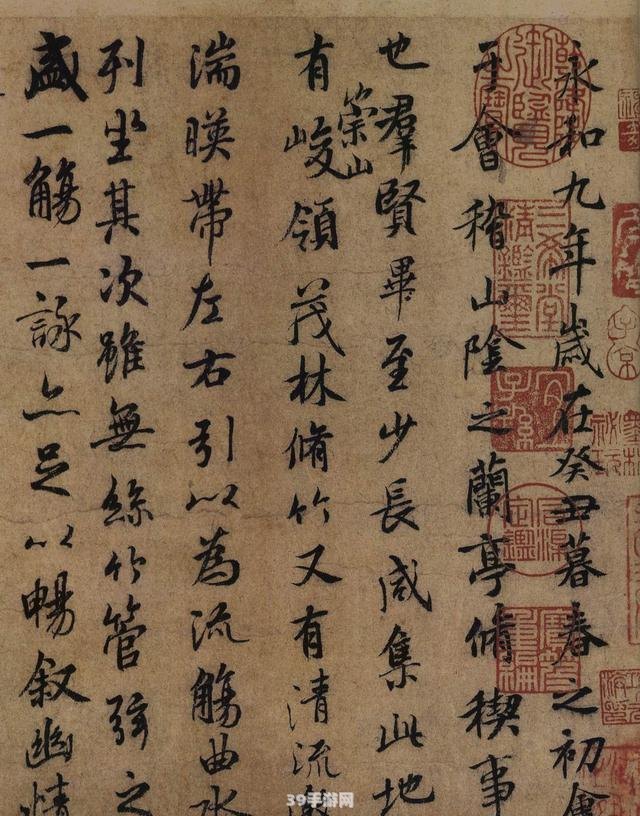 永和九年歲在癸丑暮春之初會
于會稽山陰之蘭亭脩稧事
也羣賢畢至少長咸集此地
有崇山峻領茂林脩竹又有清流激
湍暎帶左右引以為流觴曲水
列坐其次雖無絲竹管弦之
盛一觴一詠亦足以暢叙幽情
三希堂精鑑璽
39手游网